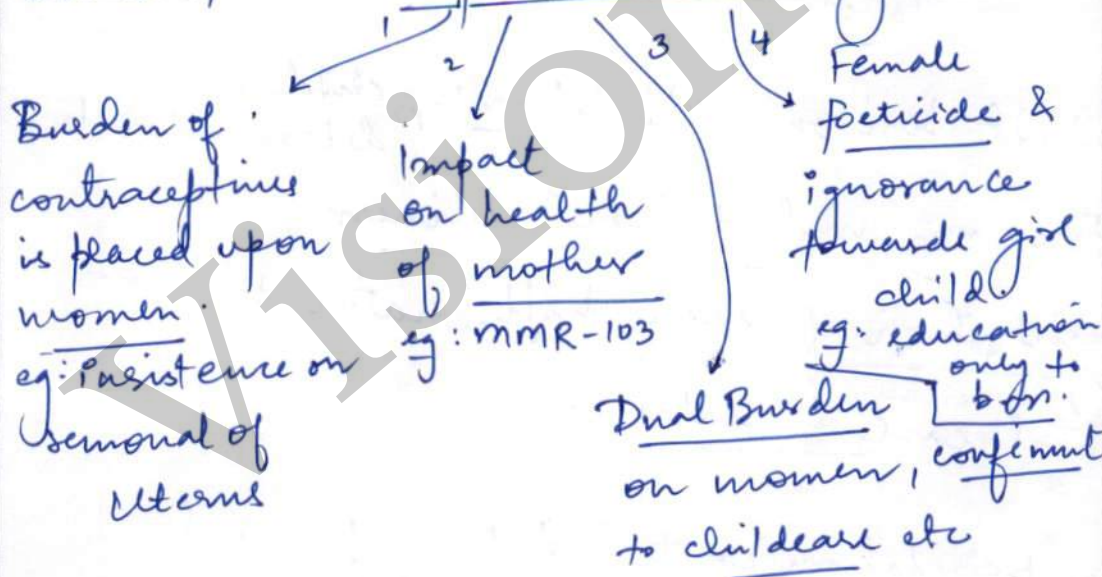 1
Burden of
contraceptives
is placed upon
women.
eg: insistence on
removal of
Uterus
2
Impact
on health
of mother
eg: MMR-103
3
Dual Burden
on women, confinmt
to childcare etc
4
Female
foeticide &
ignorance
towards girl
child.
eg. education
only to
boy.
Vision